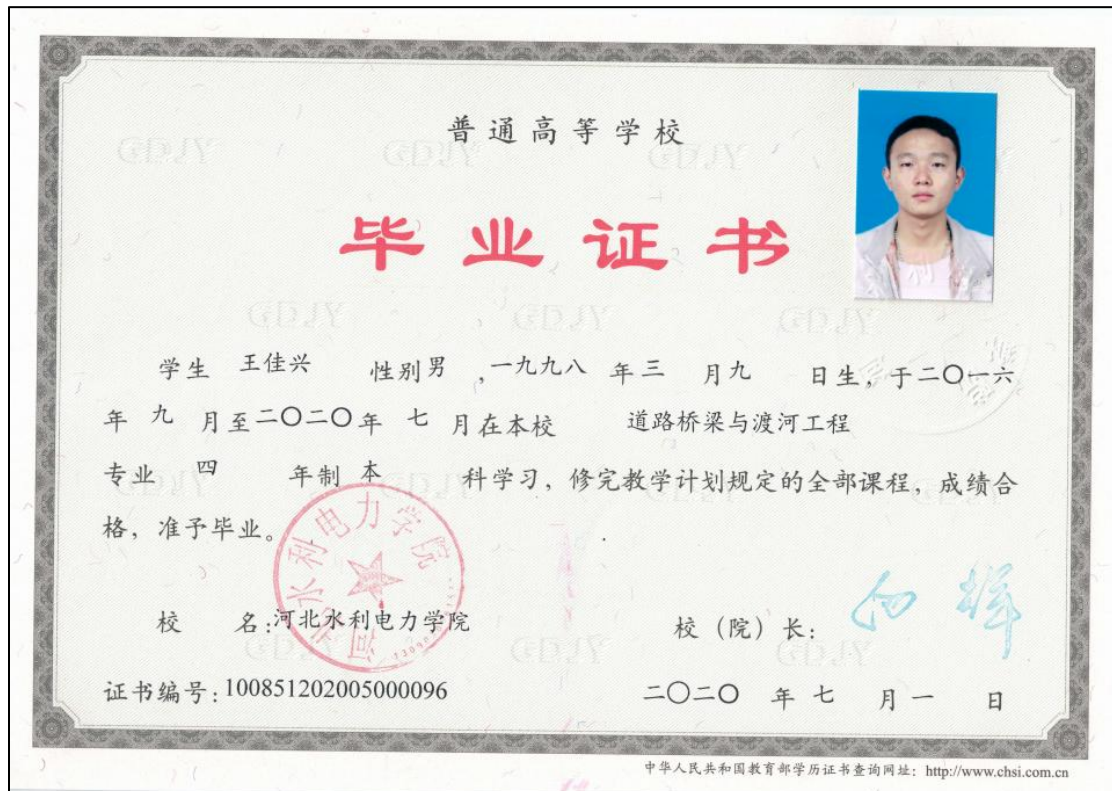 普通高等学校
毕业证书
学生 王佳兴 性别男 ,一九九八 年三 月九 日生，于二〇一六
年 九 月至二〇二〇年 七 月在本校 道路桥梁与渡河工程
专业 四 年制 本 科学习，修完教学计划规定的全部课程，成绩合
格，准予毕业。
河北水利电力学院
校 名:河北水利电力学院 校（院）长：
证书编号:100851202005000096 二〇二〇 年 七 月 一 日
中华人民共和国教育部学历证书查询网址：http://www.chsi.com.cn